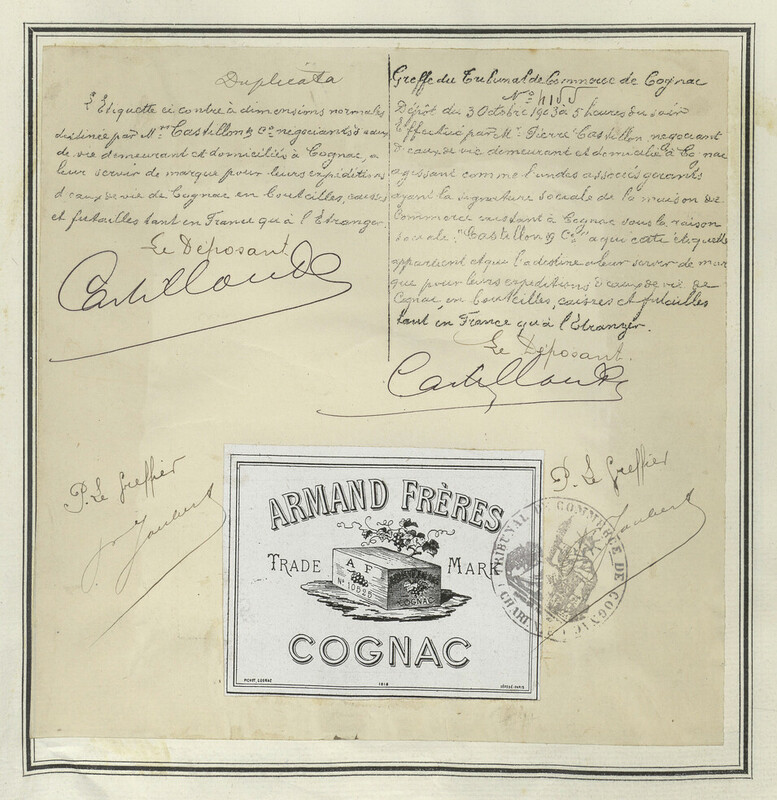 Duplicata
L'Etiquette ci contre à dimensions normales
destinée par Mrs Castillon & Co négociants d'eaux
de vie demeurant et domiciliés à Cognac, a
leur servir de marque pour leurs expéditions
d'eaux de vie de Cognac en bouteilles, caisses
et futailles tant en France qu'à l'Etranger.
Le Déposant
Castillon & Co
Greffe du Tribunal de Commerce de Cognac
No
Dépôt du 3 Octobre 1903 à 5 heures du soir
Effectué par Mr Pierre Castillon négociant
d'eaux de vie demeurant et domicilié à Cognac
agissant comme l'un des associés gérants
ayant la signature sociale de la maison de
Commerce existant à Cognac sous la raison
sociale "Castillon & Co" a qui cette étiquette
appartient et qui l'a destine a leur servir de mar
que pour leurs expéditions d'eaux de vie de
Cognac en bouteilles, caisses et futailles
tant en France qu'à l'Etranger.
Le Déposant.
Castillon & Co
P. Le Greffier
Joubert
P. Le Greffier
Joubert
ARMAND FRÈRES
TRADE MARK
A F
No 10525
ARMAND FRÈRES
COGNAC
COGNAC
PICHOT, COGNAC
1818
TRIBUNAL DE COMMERCE DE COGNAC